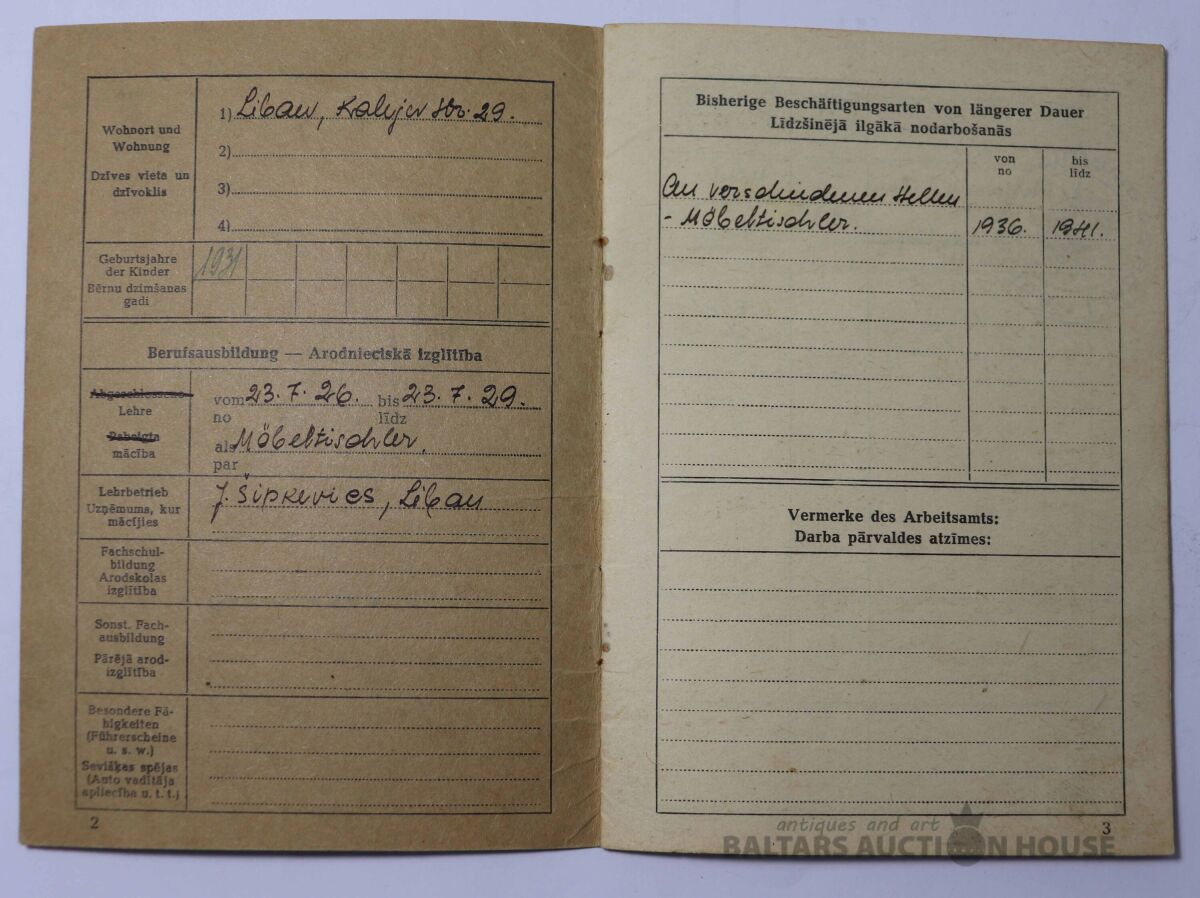 Wohnort und
Wohnung
Dzīves vieta un
dzīvoklis
1) Libau, Kalejw Str. 29.
2)
3)
4)
Geburtsjahre
der Kinder
Bērnu dzimšanas
gadi
1931
Berufsausbildung — Arodnieciskā izglītība
Abgeschlossene
Lehre
Pabeigta
mācība
vom 23. 7. 26. bis 23. 7. 29.
no līdz
als Möbeltischler.
par
Lehrbetrieb
Uzņēmums, kur
mācījies
J. Šipkevics, Libau
Fachschul-
bildung
Arodskolas
izglītība
Sonst. Fach-
ausbildung
Pārējā arod-
izglītība
Besondere Fä-
higkeiten
(Führerscheine
u. s. w.)
Sevišķas spējas
(Auto vadītāja
apliecība u. t. t.)
2
Bisherige Beschäftigungsarten von längerer Dauer
Līdzšinējā ilgākā nodarbošanās
von bis
no līdz
An verschiedenen Stellen
- Möbeltischler. 1936. 1941.
Vermerke des Arbeitsamts:
Darba pārvaldes atzīmes:
3
antiques and art
BALTARS AUCTION HOUSE